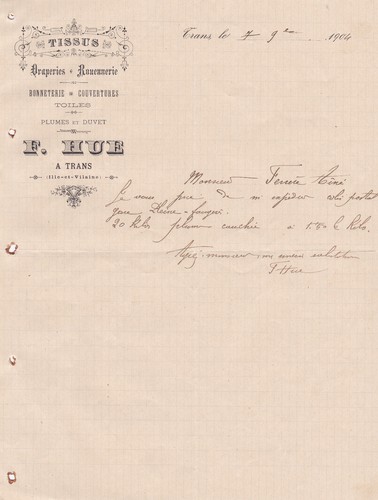 TISSUS
Draperies & Rouennerie
BONNETERIE & COUVERTURES
TOILES
PLUMES ET DUVET
F. HUE
A TRANS
(Ille-et-Vilaine)
Trans le 7 9bre 1904
Monsieur Ferrée
Je vous prie de m expédier colis postal
gare Pleine-fougère
20 Kilos plume à 1.80 le Kilo
monsieur mes salutation
F Hue